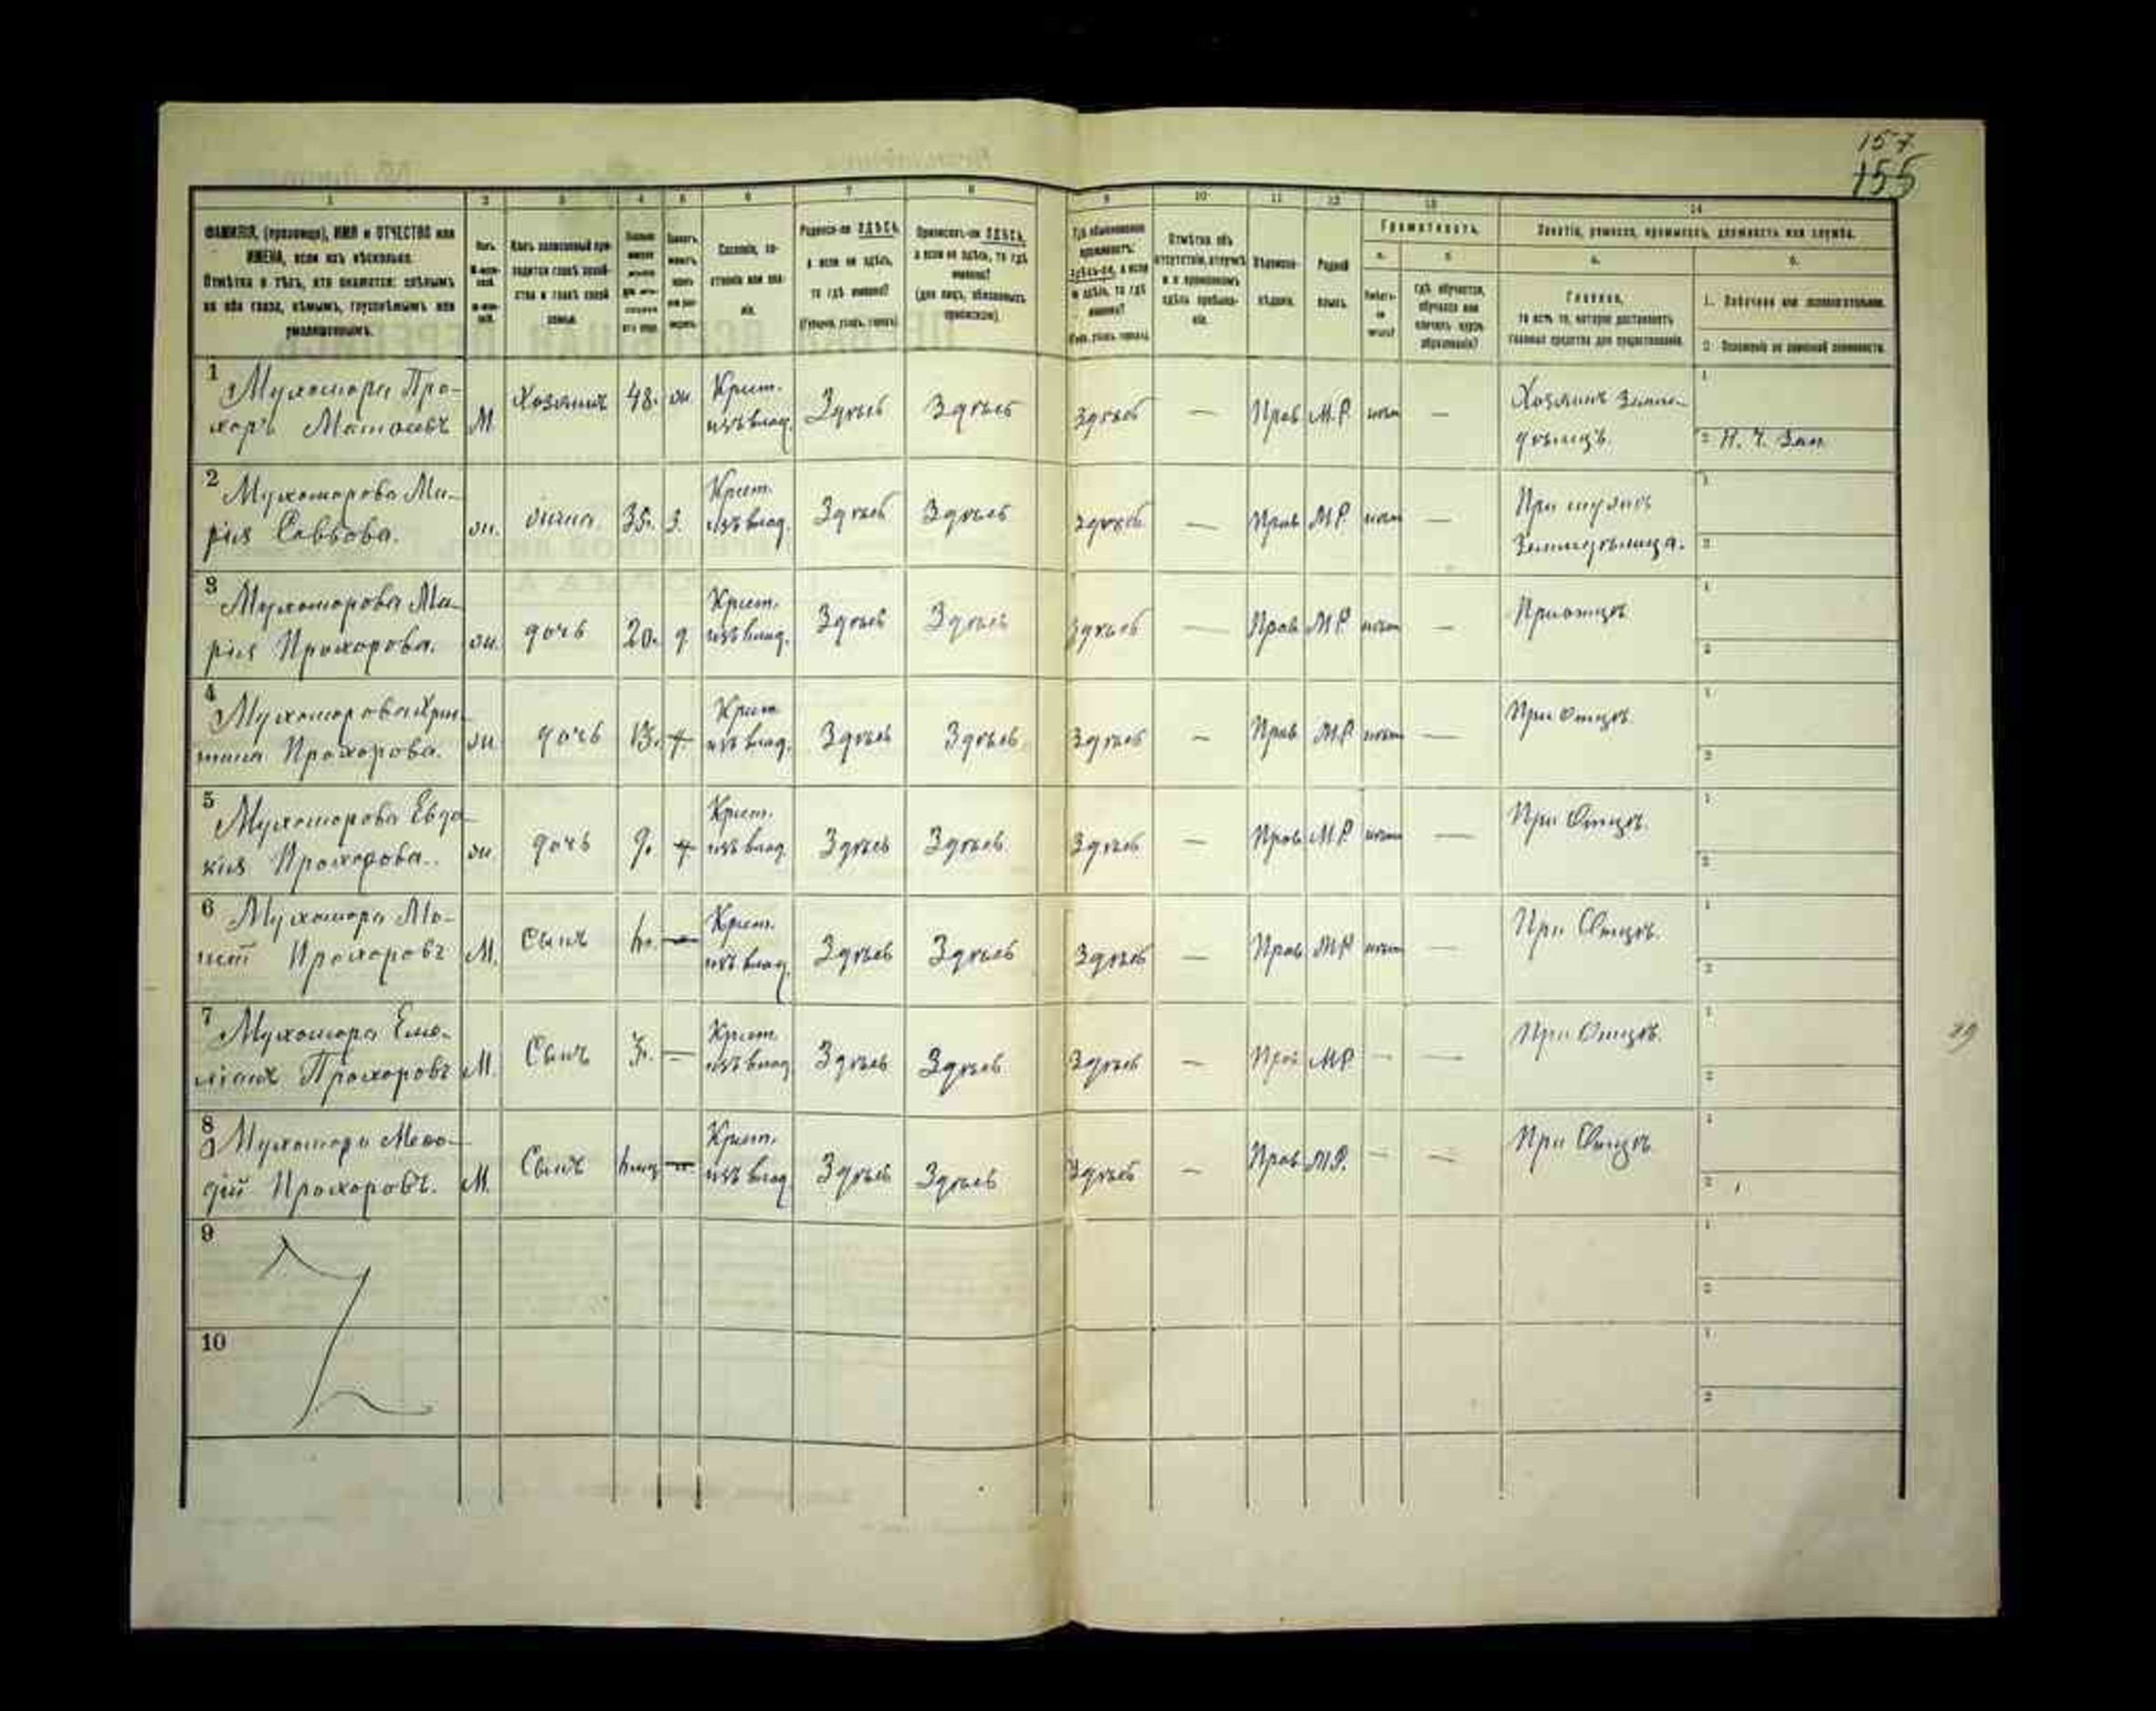 157
155
1 2 3 4 5 6 7 8 9 10 11 12 13 14
ФАМИЛІЯ, (прозвище), ИМЯ и ОТЧЕСТВО или
ИМЕНА, если ихъ нѣсколько.
Отмѣтка о тѣхъ, кто окажется: слѣпымъ
на оба глаза, нѣмымъ, глухонѣмымъ или
умалишеннымъ.
Полъ.
Какъ записанный при-
ходится главѣ хозяй-
ства и главѣ своей
семьи.
Сословіе, со-
стояніе или зва-
ніе.
Родился-ли ЗДѢСЬ,
а если не здѣсь,
то гдѣ именно?
(Губернія, уѣздъ, городъ).
Приписанъ-ли ЗДѢСЬ,
а если не здѣсь, то гдѣ
именно?
(для лицъ, обязанныхъ
припискою).
Гдѣ обыкновенно
проживаетъ:
здѣсь-ли, а если
не здѣсь, то гдѣ
именно?
Отмѣтка объ
отсутствіи, отлучкѣ
и о временномъ
здѣсь пребыва-
ніи.
Вѣроиспо-
вѣданіе.
Родной
языкъ.
Грамотность.
а. б.
Умѣетъ-
ли
читать?
гдѣ обучается,
обучался или
кончилъ курсъ
образованія?
Занятіе, ремесло, промыселъ, должность или служба.
а. б.
Главное,
то есть то, которое доставляетъ
главныя средства для существованія.
1. Побочное или вспомогательное.
2. Положеніе по воинской повинности.
1 Мухомора Про-
хоръ Матвѣевъ М Хозяинъ 48. ж Крест. изъ влад. Здѣсь Здѣсь Здѣсь — Прав М.Р. нѣтъ — Хозяинъ Земле-
дѣлецъ. 1
2 Н. Ч. Зап.
2 Мухоморова Ма-
рія Саввова. ж. жена 35. з. Крест. изъ влад. Здѣсь Здѣсь Здѣсь — Прав М.Р. нѣтъ — При мужѣ
Земледѣлица. 1
2
3 Мухоморова Ма-
рія Прохорова. ж. дочь 20. д Крест. изъ влад. Здѣсь Здѣсь Здѣсь — Прав М.Р. нѣтъ — При отцѣ 1
2
4 Мухоморова Хрис-
тина Прохорова. ж дочь 13. Крест изъ влад. Здѣсь Здѣсь Здѣсь — Прав М.Р. нѣтъ — При Отцѣ 1
2
5 Мухоморова Евдо-
кія Прохорова. ж. дочь 9. Крест. изъ влад. Здѣсь Здѣсь Здѣсь — Прав М.Р. нѣтъ — При Отцѣ. 1
2
6 Мухомора Мо-
исей Прохоровъ М. Сынъ — Крест. изъ влад. Здѣсь Здѣсь Здѣсь — Прав М.Р. нѣтъ — При Отцѣ. 1
2
7 Мухомора Еме-
ліанъ Прохоровъ М. Сынъ 3. — Крест. изъ влад. Здѣсь Здѣсь Здѣсь — Прав М.Р. — — При Отцѣ. 1
2
8 Мухомора Мефо-
дій Прохоровъ. М. Сынъ — Крест. изъ влад. Здѣсь Здѣсь Здѣсь — Прав М.Р. — — При Отцѣ 1
2
9 1
2
10 1
2